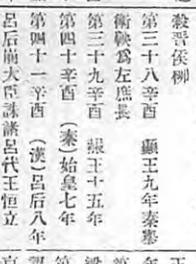 晉侯柳
第三十八辛酉　顯王九年秦
衞鞅為左庶長
第三十九辛酉　赧王十五年
第四十辛酉　（秦）始皇七年
第四十一辛酉　（漢）呂后八年
呂后崩大臣誅諸呂代王恒立